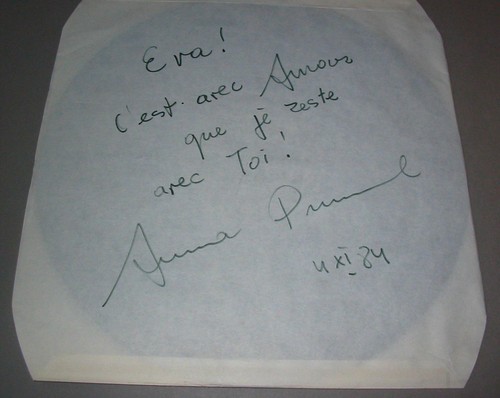 Eva!
C'est avec Amour
que je reste
avec Toi!
Anna
4 XI 84